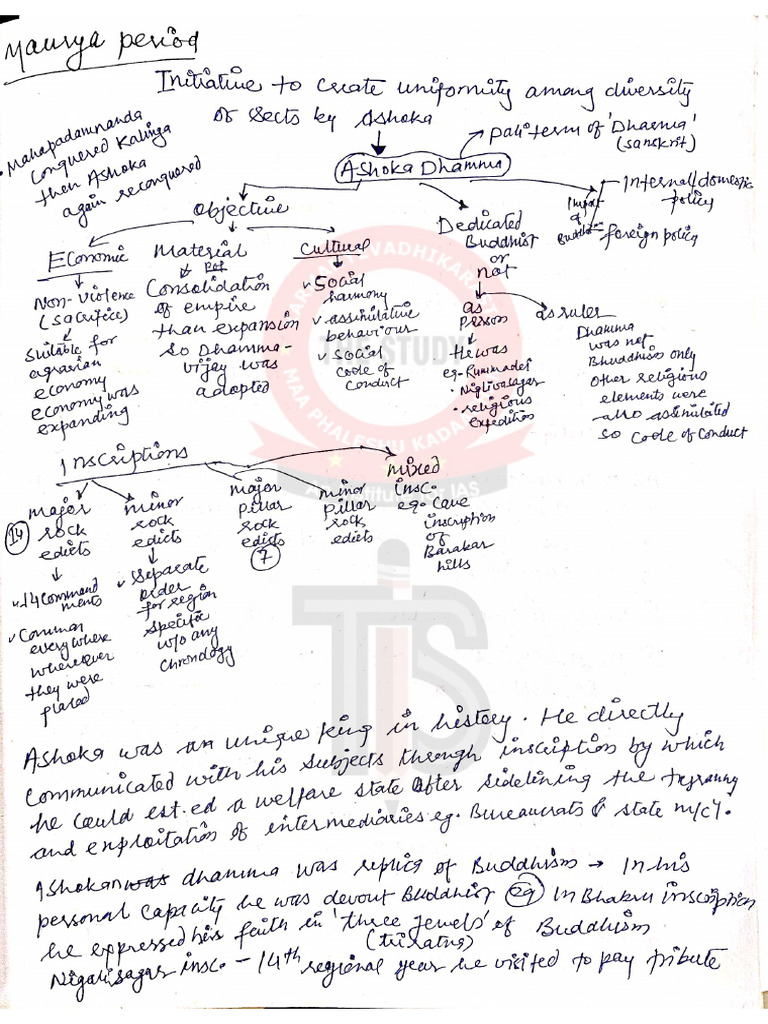 Maurya period
Initiative to create uniformity among diversity
of sects by Ashoka
• Mahapadamnanda
conquered Kalinga
then Ashoka
again reconquered
Ashoka Dhamma
Pali term of 'Dharma'
(sanskrit)
Internal/domestic
policy
Impact
of
Buddhism
foreign policy
Objective
Economic
Non-violence
(sacrifice)
Suitable for
agrarian
economy
economy was
expanding
Material
Consolidation
of empire
than expansion
so Dhamma-
vijay was
adopted
Cultural
✓ Social
harmony
✓ assimilative
behaviour
✓ Social
code of
Conduct
Dedicated
Buddhist
or
not
as
person
He was
eg - Rummadei
• Niglivasagar
• religious
expedition
as ruler
Dhamma
was not
Bhuddhism only
other religious
elements were
also assimilated
so code of Conduct
Inscriptions
14
major
rock
edicts
✓ 14 Command
ments
✓ Common
everywhere
wherever
they were
placed
minor
rock
edicts
✓ Separate
order
for region
specific
w/o any
chronology
major
pillar
rock
edicts
7
minor
pillar
rock
edicts
mixed
insc.
eg. Cave
inscription
of
Barakar
hills
Ashoka was an unique king in history. He directly
communicated with his subjects through inscription by which
he could est.ed a welfare state after sidelining the tyranny
and exploitation of intermediaries eg. Bureaucrats & state m/c/.
Ashokan dhamma was replica of Buddhism → In his
personal capacity he was devout Buddhist eg In Bhabru inscription
he expressed his faith in 'three jewels' of Buddhism
(triratna)
Nigalisagar insc. - 14th regional year he visited to pay tribute
THE STUDY
KARMANYEVADHIKARASTE
MAA PHALESHU KADACHANA
An Institute for IAS
TIS